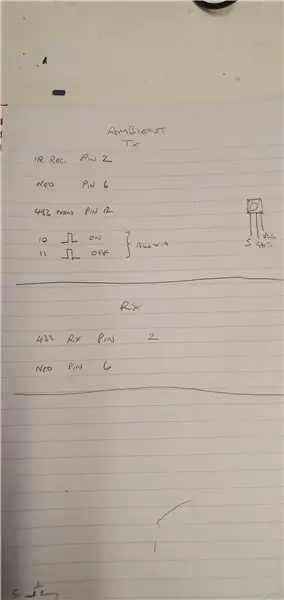 AMBIENT
TX
IR REC PIN 2
NEO PIN 6
433 TRANS PIN 12
10 ON
11 OFF
S GND VCC
RX
433 RX PIN 2
NEO PIN 6